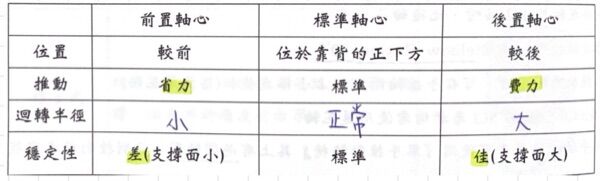 前置軸心 標準軸心 後置軸心
位置 較前 位於靠背的正下方 較後
推動 省力 標準 費力
迴轉半徑 小 正常 大
穩定性 差(支撐面小) 標準 佳(支撐面大)